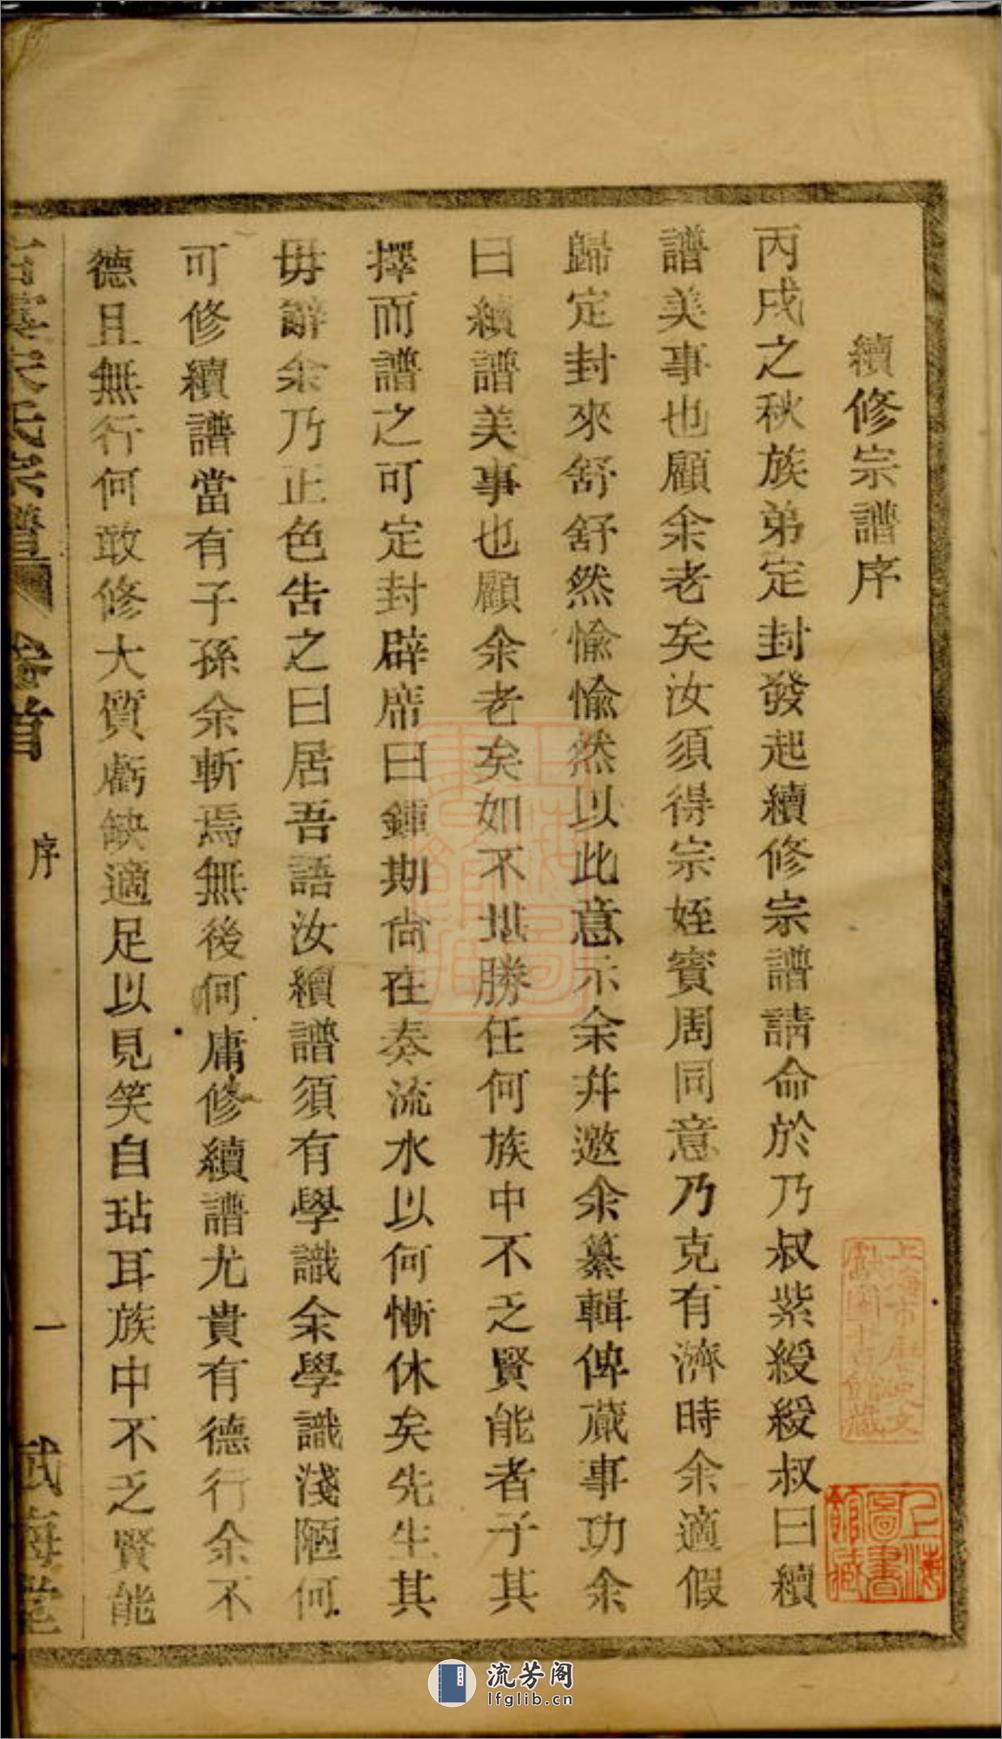 續修宗譜序
丙戌之秋族弟定封發起續修宗譜請命於乃叔紫綬綬叔曰續
譜美事也顧余老矣汝須得宗姪賓周同意乃克有濟時余適假
歸定封來舒舒然愉愉然以此意示余幷邀余纂輯俾蕆事功余
曰續譜美事也顧余老矣如不堪勝任何族中不乏賢能者子其
擇而譜之可定封辟席曰鍾期尙在奏流水以何慚休矣先生其
毋辭余乃正色告之曰居吾語汝續譜須有學識余學識淺陋何
可修續譜當有子孫余斬焉無後何庸修續譜尤貴有德行余不
德且無行何敢修大質虧缺適足以見笑自玷耳族中不乏賢能
宋氏宗譜 卷首 序 一
上海圖書館藏
流芳阁
lfglib.cn